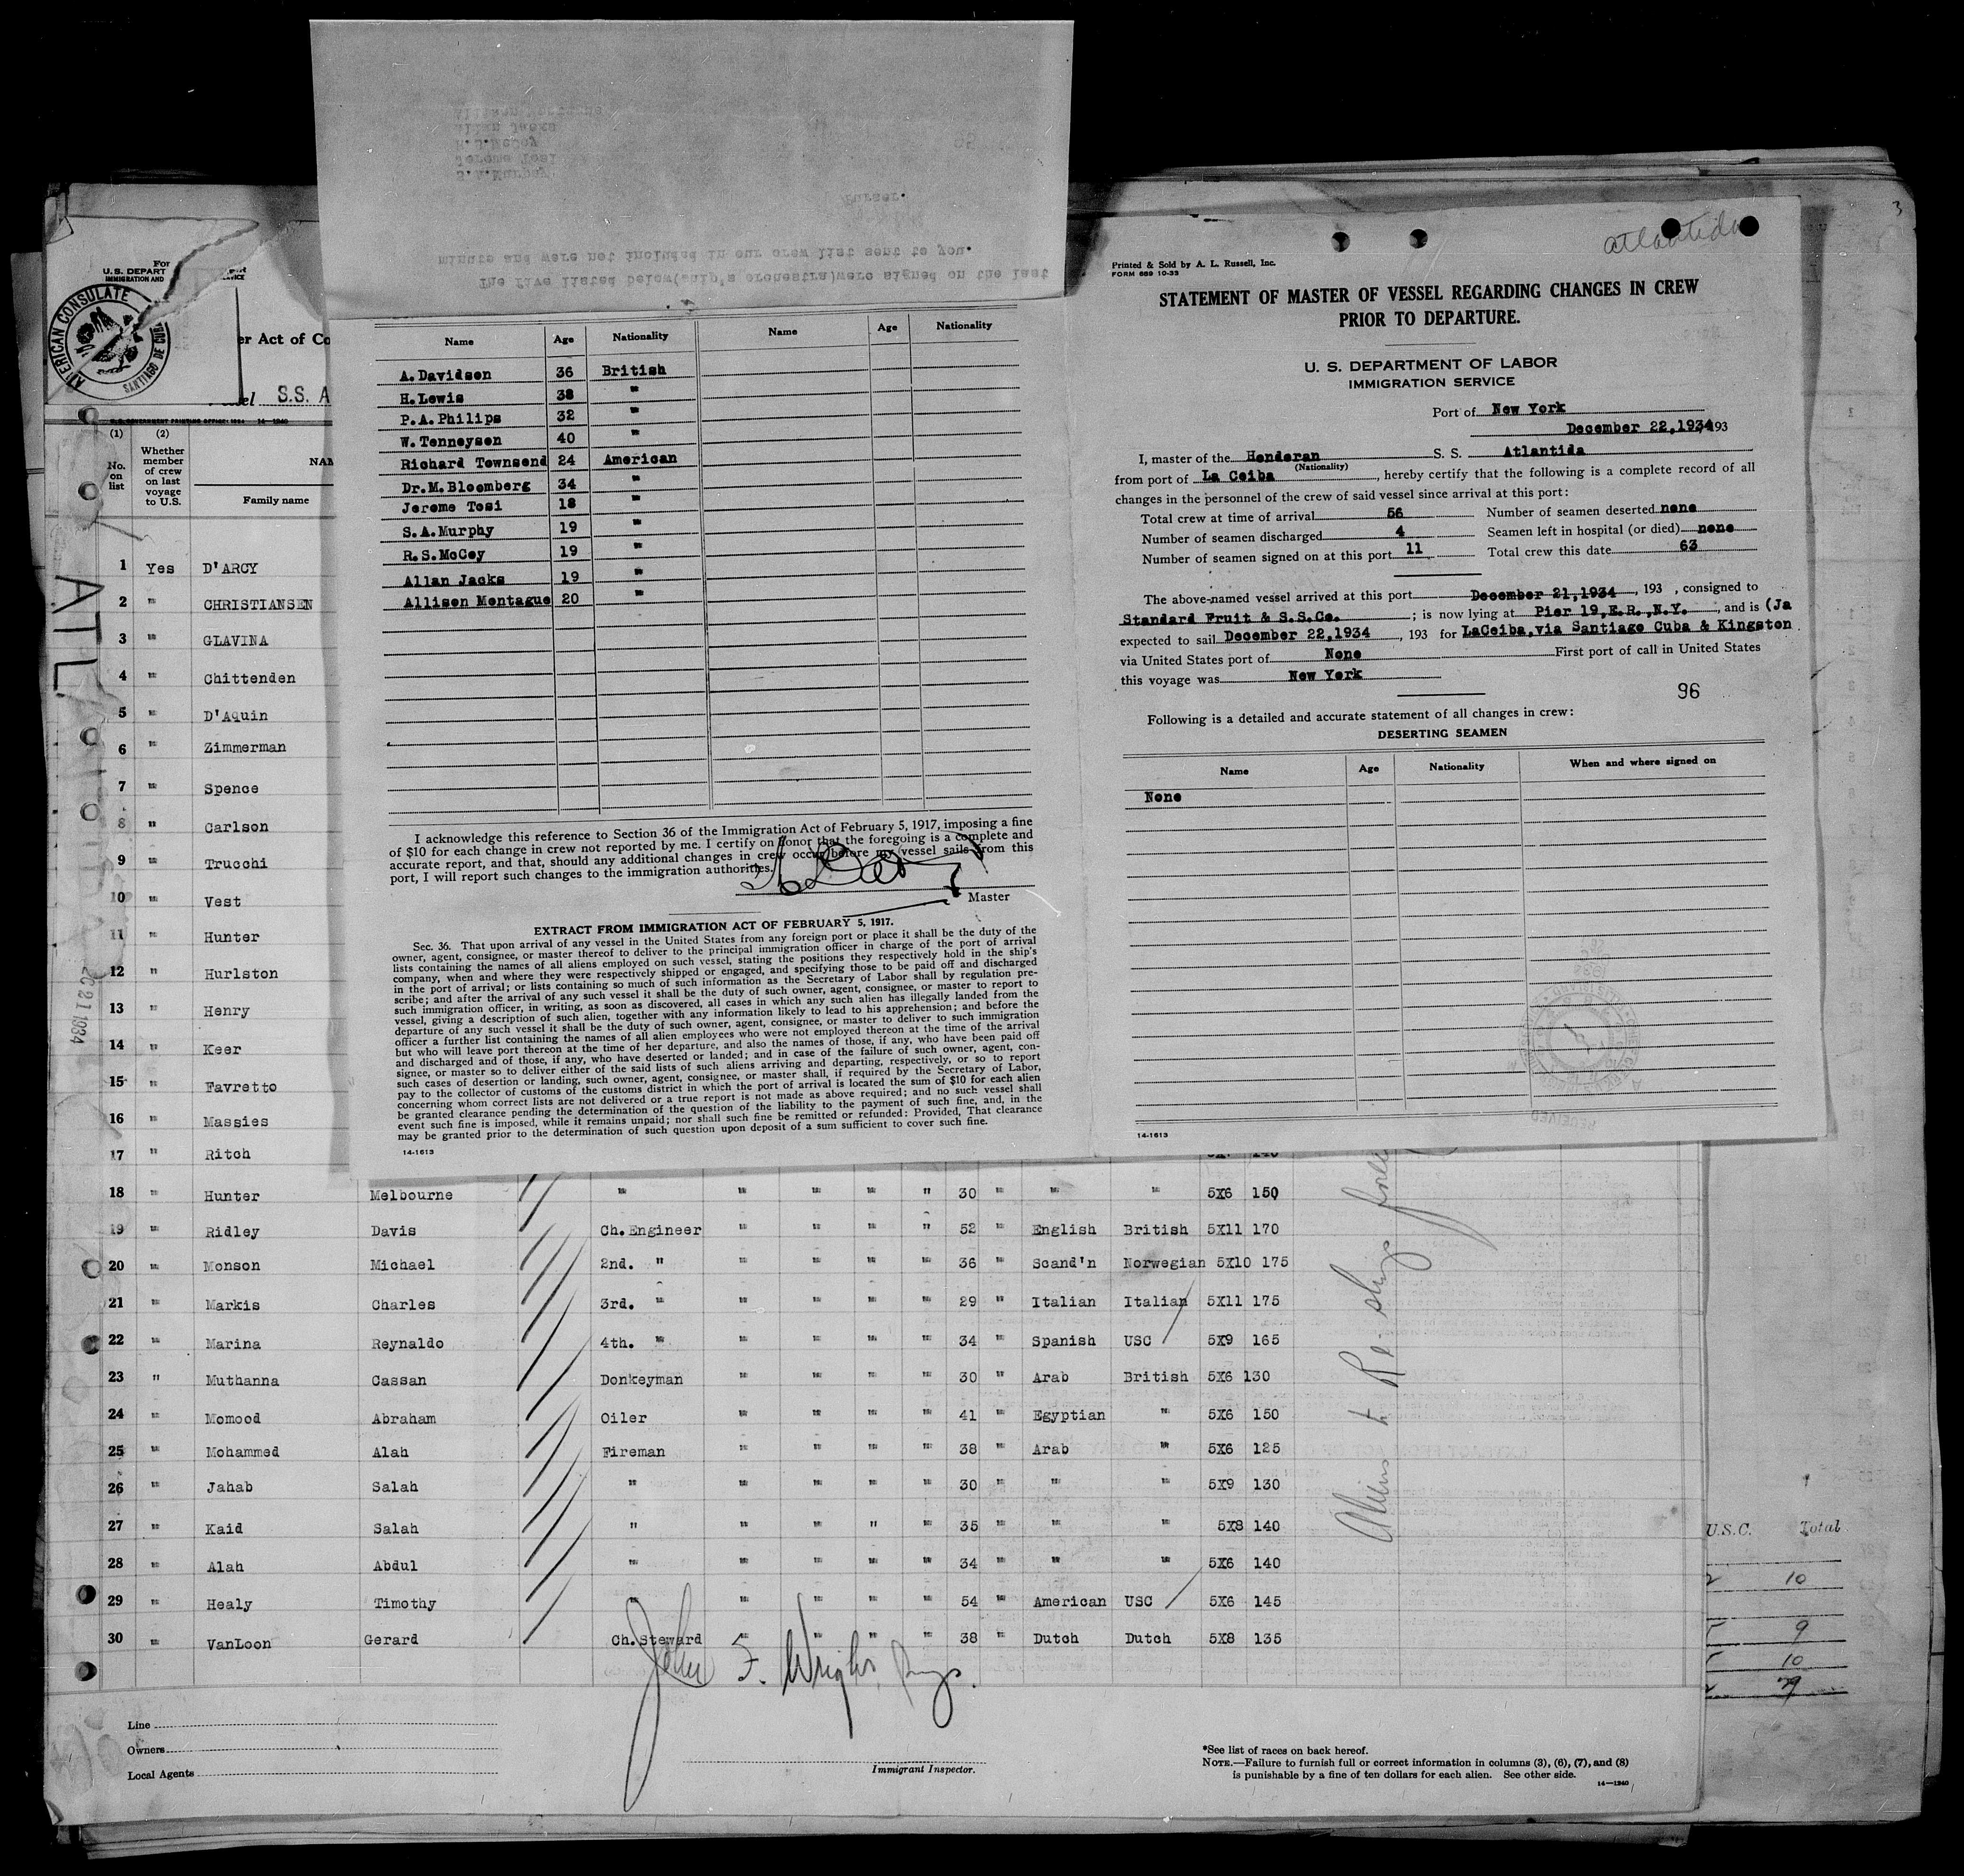 Allison Montague
Allan Jacks
R.S.McCoy
Jerome Tosi
S.A.Murphy
Purser.
minute and were not included in our crew list sent to you.
The five listed below(ship's orchestra)were signed on the last
Name Age Nationality Name Age Nationality
A.Davidsen 36 British
H.Lewis 38 "
P.A.Philips 32 "
W.Tenneysen 40 "
Richard Townsend 24 American
Dr.M.Bloomberg 34 "
Jerome Tosi 18 "
S.A.Murphy 19 "
R.S.McCoy 19 "
Allan Jacks 19 "
Allison Montague 20 "
I acknowledge this reference to Section 36 of the Immigration Act of February 5, 1917, imposing a fine
of $10 for each change in crew not reported by me. I certify on honor that the foregoing is a complete and
accurate report, and that, should any additional changes in crew occur before my vessel sails from this
port, I will report such changes to the immigration authorities.
Master
EXTRACT FROM IMMIGRATION ACT OF FEBRUARY 5, 1917.
Sec. 36. That upon arrival of any vessel in the United States from any foreign port or place it shall be the duty of the
owner, agent, consignee, or master thereof to deliver to the principal immigration officer in charge of the port of arrival
lists containing the names of all aliens employed on such vessel, stating the positions they respectively hold in the ship's
company, when and where they were respectively shipped or engaged, and specifying those to be paid off and discharged
in the port of arrival; or lists containing so much of such information as the Secretary of Labor shall by regulation pre-
scribe; and after the arrival of any such vessel it shall be the duty of such owner, agent, consignee, or master to report to
such immigration officer, in writing, as soon as discovered, all cases in which any such alien has illegally landed from the
vessel, giving a description of such alien, together with any information likely to lead to his apprehension; and before the
departure of any such vessel it shall be the duty of such owner, agent, consignee, or master to deliver to such immigration
officer a further list containing the names of all alien employees who were not employed thereon at the time of the arrival
but who will leave port thereon at the time of her departure, and also the names of those, if any, who have been paid off
and discharged and of those, if any, who have deserted or landed; and in case of the failure of such owner, agent, con-
signee, or master so to deliver either of the said lists of such aliens arriving and departing, respectively, or so to report
such cases of desertion or landing, such owner, agent, consignee, or master shall, if required by the Secretary of Labor,
pay to the collector of customs of the customs district in which the port of arrival is located the sum of $10 for each alien
concerning whom correct lists are not delivered or a true report is not made as above required; and no such vessel shall
be granted clearance pending the determination of the question of the liability to the payment of such fine, and, in the
event such fine is imposed, while it remains unpaid; nor shall such fine be remitted or refunded: Provided, That clearance
may be granted prior to the determination of such question upon deposit of a sum sufficient to cover such fine.
14-1613
Atlantida
Printed & Sold by A. L. Russell, Inc.
FORM 689 10-33
STATEMENT OF MASTER OF VESSEL REGARDING CHANGES IN CREW
PRIOR TO DEPARTURE.
U. S. DEPARTMENT OF LABOR
IMMIGRATION SERVICE
Port of New York
December 22,1934, 193
I, master of the Honderan S. S. Atlantida
(Nationality)
from port of La Ceiba, hereby certify that the following is a complete record of all
changes in the personnel of the crew of said vessel since arrival at this port:
Total crew at time of arrival 56 Number of seamen deserted none
Number of seamen discharged 4 Seamen left in hospital (or died) none
Number of seamen signed on at this port 11 Total crew this date 63
The above-named vessel arrived at this port December 21,1934, 193 , consigned to
Standard Fruit & S.S.Co. ; is now lying at Pier 19,E.R.,N.Y. , and is (Ja
expected to sail December 22,1934 , 193 for LaCeiba,via Santiago Cuba & Kingston
via United States port of None First port of call in United States
this voyage was New York
96
Following is a detailed and accurate statement of all changes in crew:
DESERTING SEAMEN
Name Age Nationality When and where signed on
None
RECEIVED
14-1613
For
U. S. DEPART
IMMIGRATION AND
AMERICAN CONSULATE
SANTIAGO DE CUBA
er Act of Co
S.S. A
14-1240
ATL
(1) (2)
No. on list
Whether member of crew on last voyage to U.S.
NAM
Family name
1 Yes D'ARCY
2 " CHRISTIANSEN
3 " GLAVINA
4 " Chittenden
5 " D'Aquin
6 " Zimmerman
7 " Spence
8 " Carlson
9 " Trucchi
10 " Vest
11 " Hunter
12 " Hurlston
13 " Henry
14 " Keer
15 " Favretto
16 " Massies
17 " Ritch
18 " Hunter Melbourne " " " " " 30 " " " 5X6 150
19 " Ridley Davis Ch.Engineer " " " " 52 " English British 5X11 170
20 " Monson Michael 2nd. " " " " " 36 " Scand'n Norwegian 5X10 175
21 " Markis Charles 3rd. " " " " " 29 " Italian Italian 5X11 175
22 " Marina Reynaldo 4th. " " " " " 34 " Spanish USC 5X9 165
23 " Muthanna Cassan Donkeyman " " " " 30 " Arab British 5X6 130
24 " Momood Abraham Oiler " " " " 41 " Egyptian " 5X6 150
25 " Mohammed Alah Fireman " " " " 38 " Arab " 5X6 125
26 " Jahab Salah " " " " " 30 " " " 5X9 130
27 " Kaid Salah " " " " " 35 " " " 5X8 140
28 " Alah Abdul " " " " " 34 " " " 5X6 140
29 " Healy Timothy " " " " " 54 " American USC 5X6 145
30 " VanLoon Gerard Ch.Steward " " " " 38 " Dutch Dutch 5X8 135
John F. Wright
Line
Owners
Local Agents
Immigrant Inspector.
*See list of races on back hereof.
NOTE.—Failure to furnish full or correct information in columns (3), (6), (7), and (8)
is punishable by a fine of ten dollars for each alien. See other side.
14—1240
3
U.S.C. Total
10
9
10